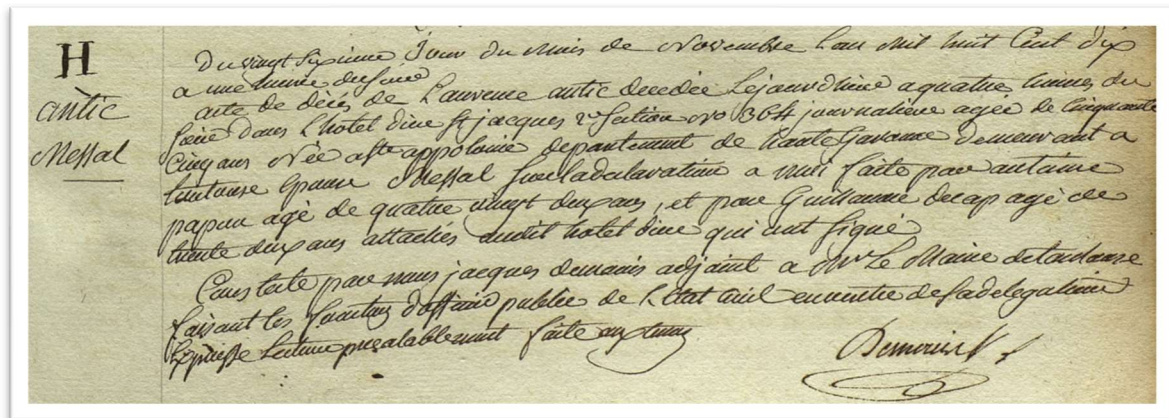 H
antic
Messal
Du vingt sixieme Jour du mois de Novembre L'an mil huit Cent dix
a une heure du soir
acte de décés de Laurence antic decedée Lejourdhier a quatre heures du
soir dans L'hotel dieu St jacques 2e section No 364 journaliere agée de Cinquante
Cinq ans Née a ste appolonie departement de haute Garonne demeurant a
toulouse Epouse Messal sur la declaration a moi faite par antoine
papun agé de quatre vingt deux ans, et par Guillaume decap agé de
trente deux ans attachés audit hotel dieu qui ont signé
Constaté par nous jacques demouis adjoint a Mr Le Maire de toulouse
faisant les fonctions d'officier public de L'état Civil en vertu de sa delegation
Expresse Lecture prealablement faite aux temoins